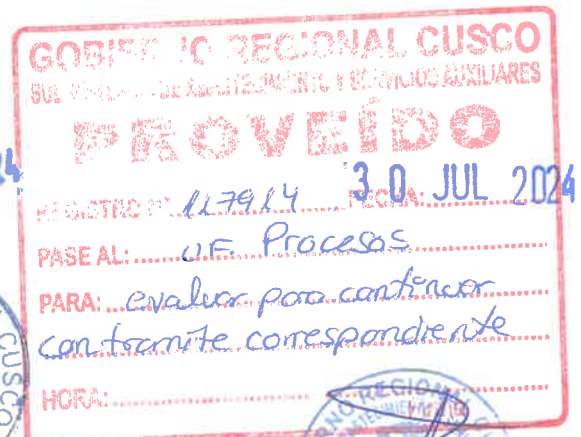 GOBIERNO REGIONAL CUSCO
ABASTECIMIENTO Y SERVICIOS AUXILIARES
PROVEÍDO
REGISTRO Nº 117914 FECHA: 30 JUL 2024
PASE AL: U.F. Procesos
PARA: evaluar para continuar
con tramite correspondiente
HORA:
CUSCO
REGIONAL